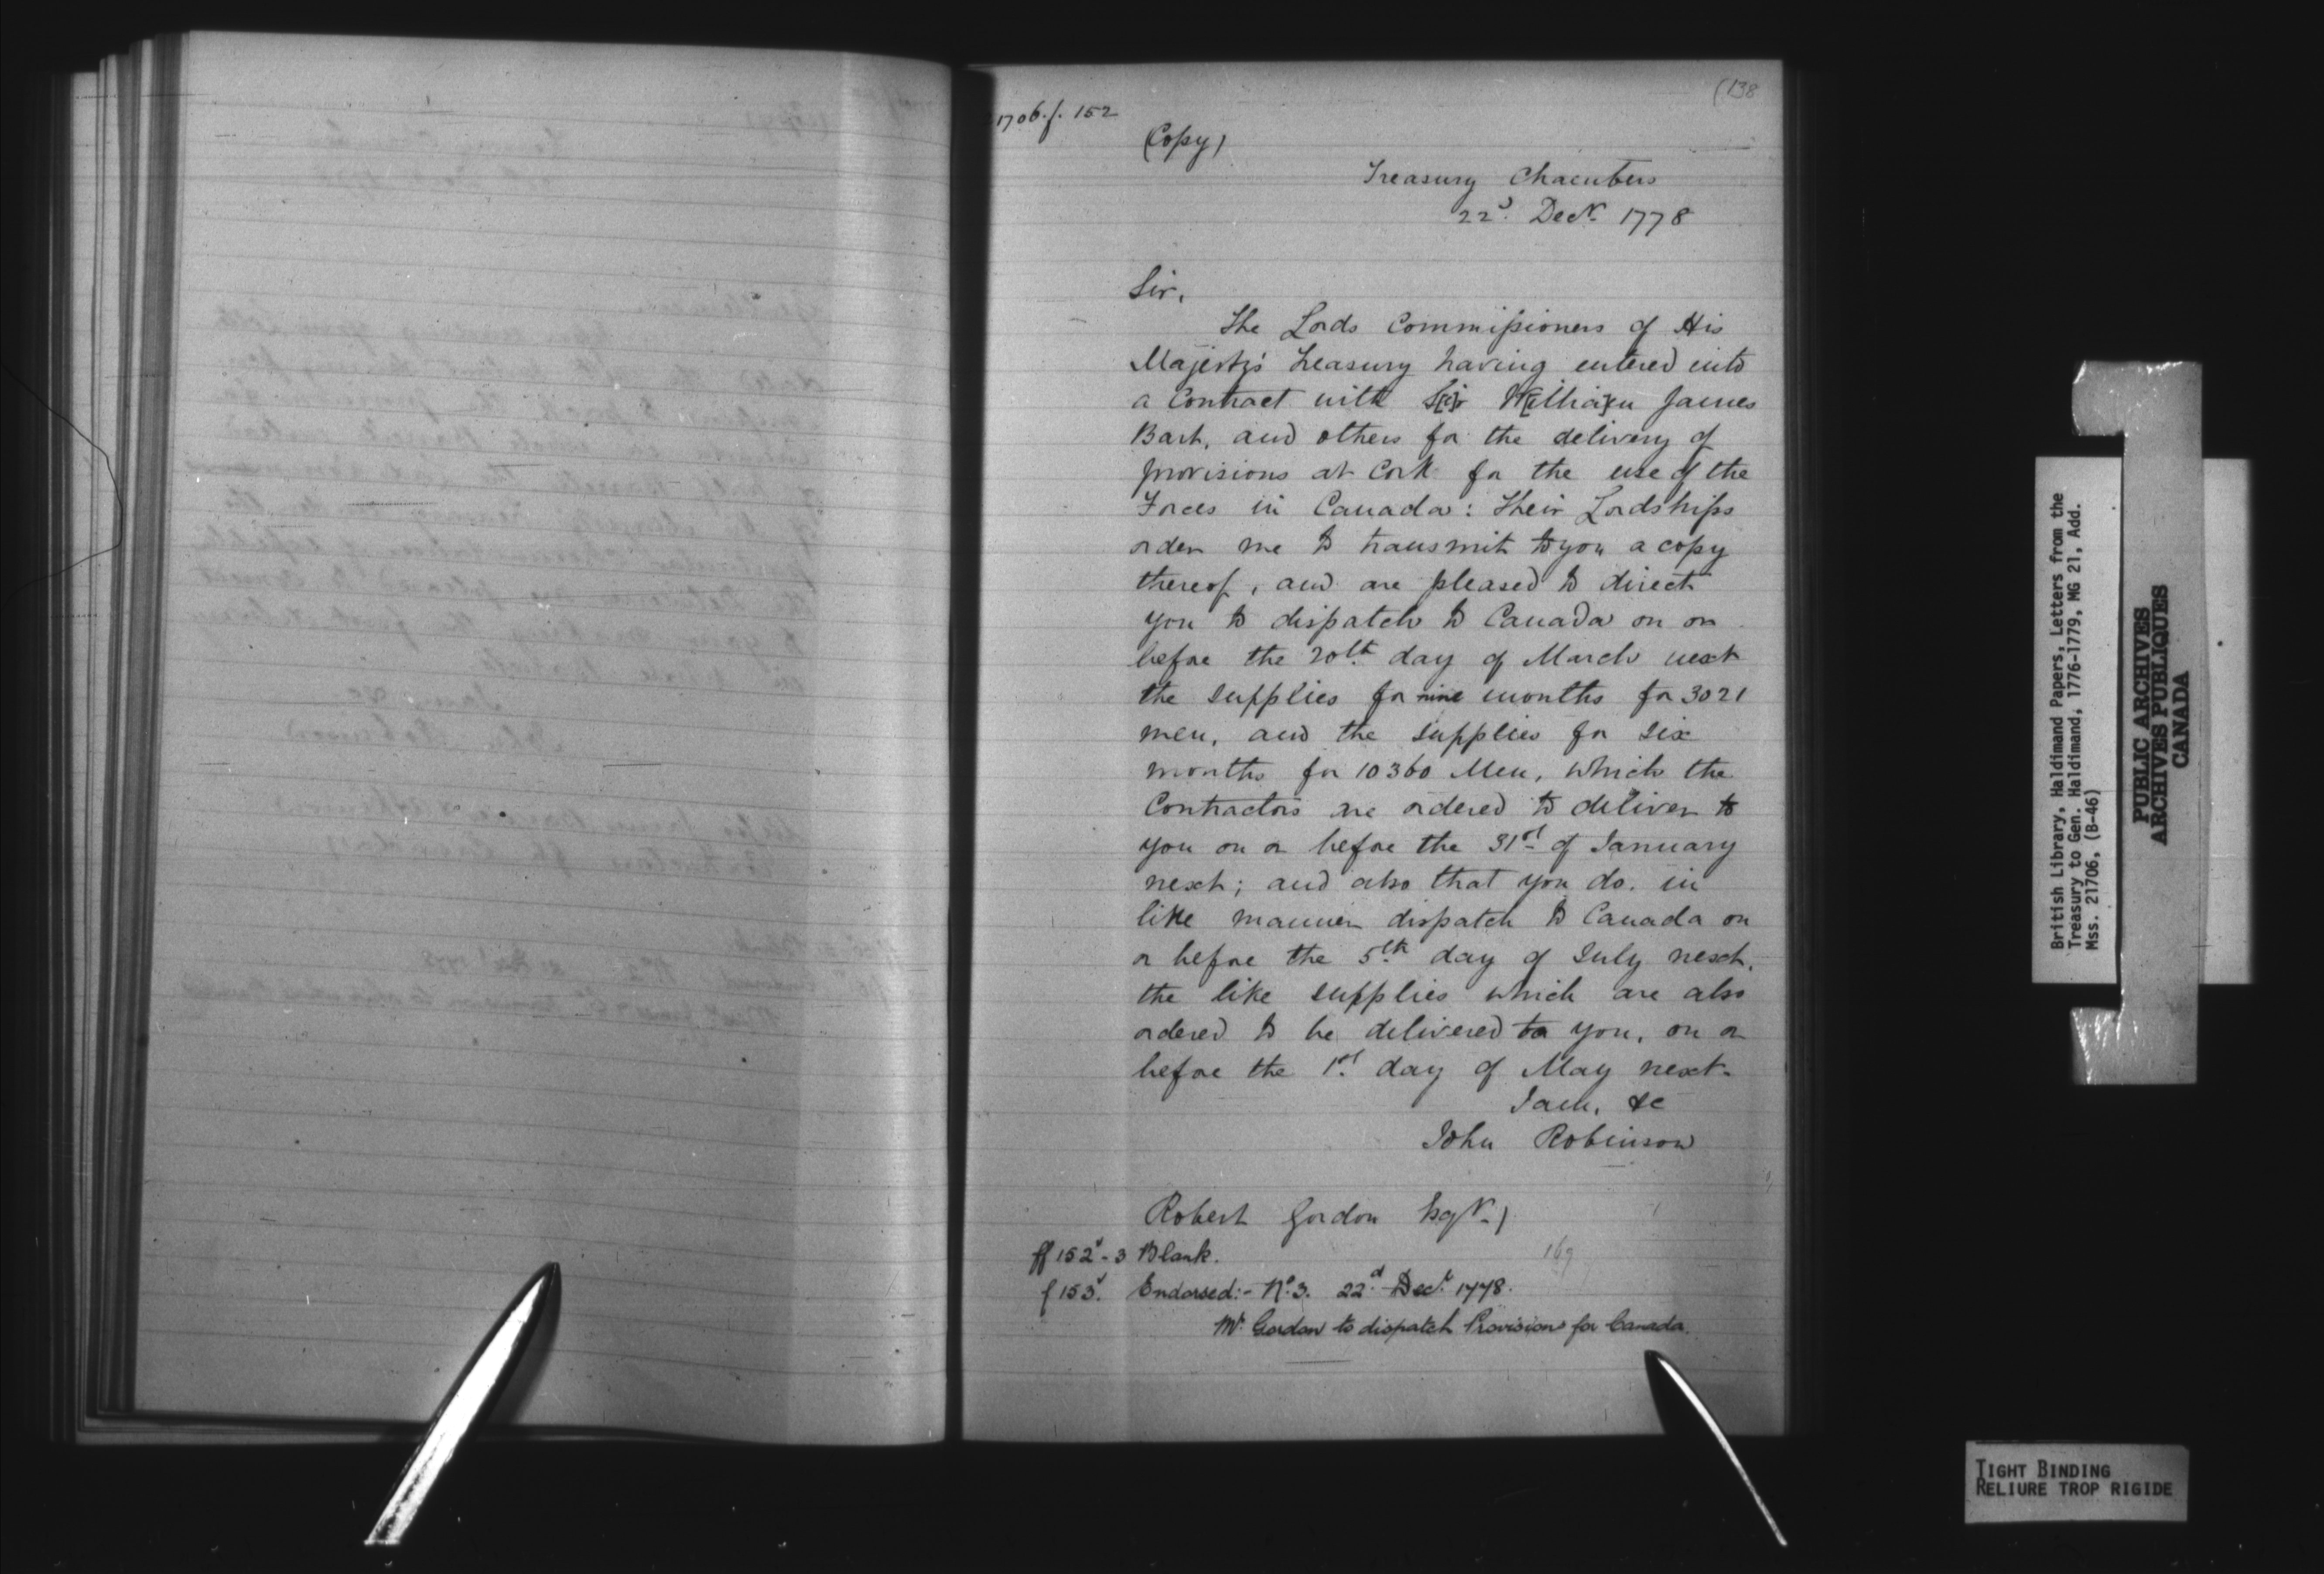 (138
1706. f. 152
(Copy)
Treasury Chambers
22d. Decr. 1778
Sir,
The Lords Commissioners of His
Majesty's Treasury having entered into
a Contract with S[i]r W[illia]m James
Bart, and others for the delivery of
provisions at Cork for the use of the
Forces in Canada: Their Lordships
order me to transmit to you a copy
thereof, and are pleased to direct
you to dispatch to Canada on or
before the 20th. day of March next
the supplies for nine months for 3021
men, and the supplies for six
months for 10360 Men, which the
Contractors are ordered to deliver to
you on or before the 31st of January
next; and also that you do. in
like manner dispatch to Canada on
or before the 5th. day of July next.
the like supplies which are also
ordered to be delivered to you, on or
before the 1st. day of May next.
I am, &c
John Robinson
Robert Gordon Esqr.)
ff 152v-3 Blank.
169
f 153v. Endorsed:- No. 3. 22d. Decr. 1778.
Mr. Gordon to dispatch Provisions for Canada.
British Library, Haldimand Papers, Letters from the
Treasury to Gen. Haldimand, 1776-1779, MG 21, Add.
Mss. 21706, (B-46)
PUBLIC ARCHIVES
ARCHIVES PUBLIQUES
CANADA
TIGHT BINDING
RELIURE TROP RIGIDE